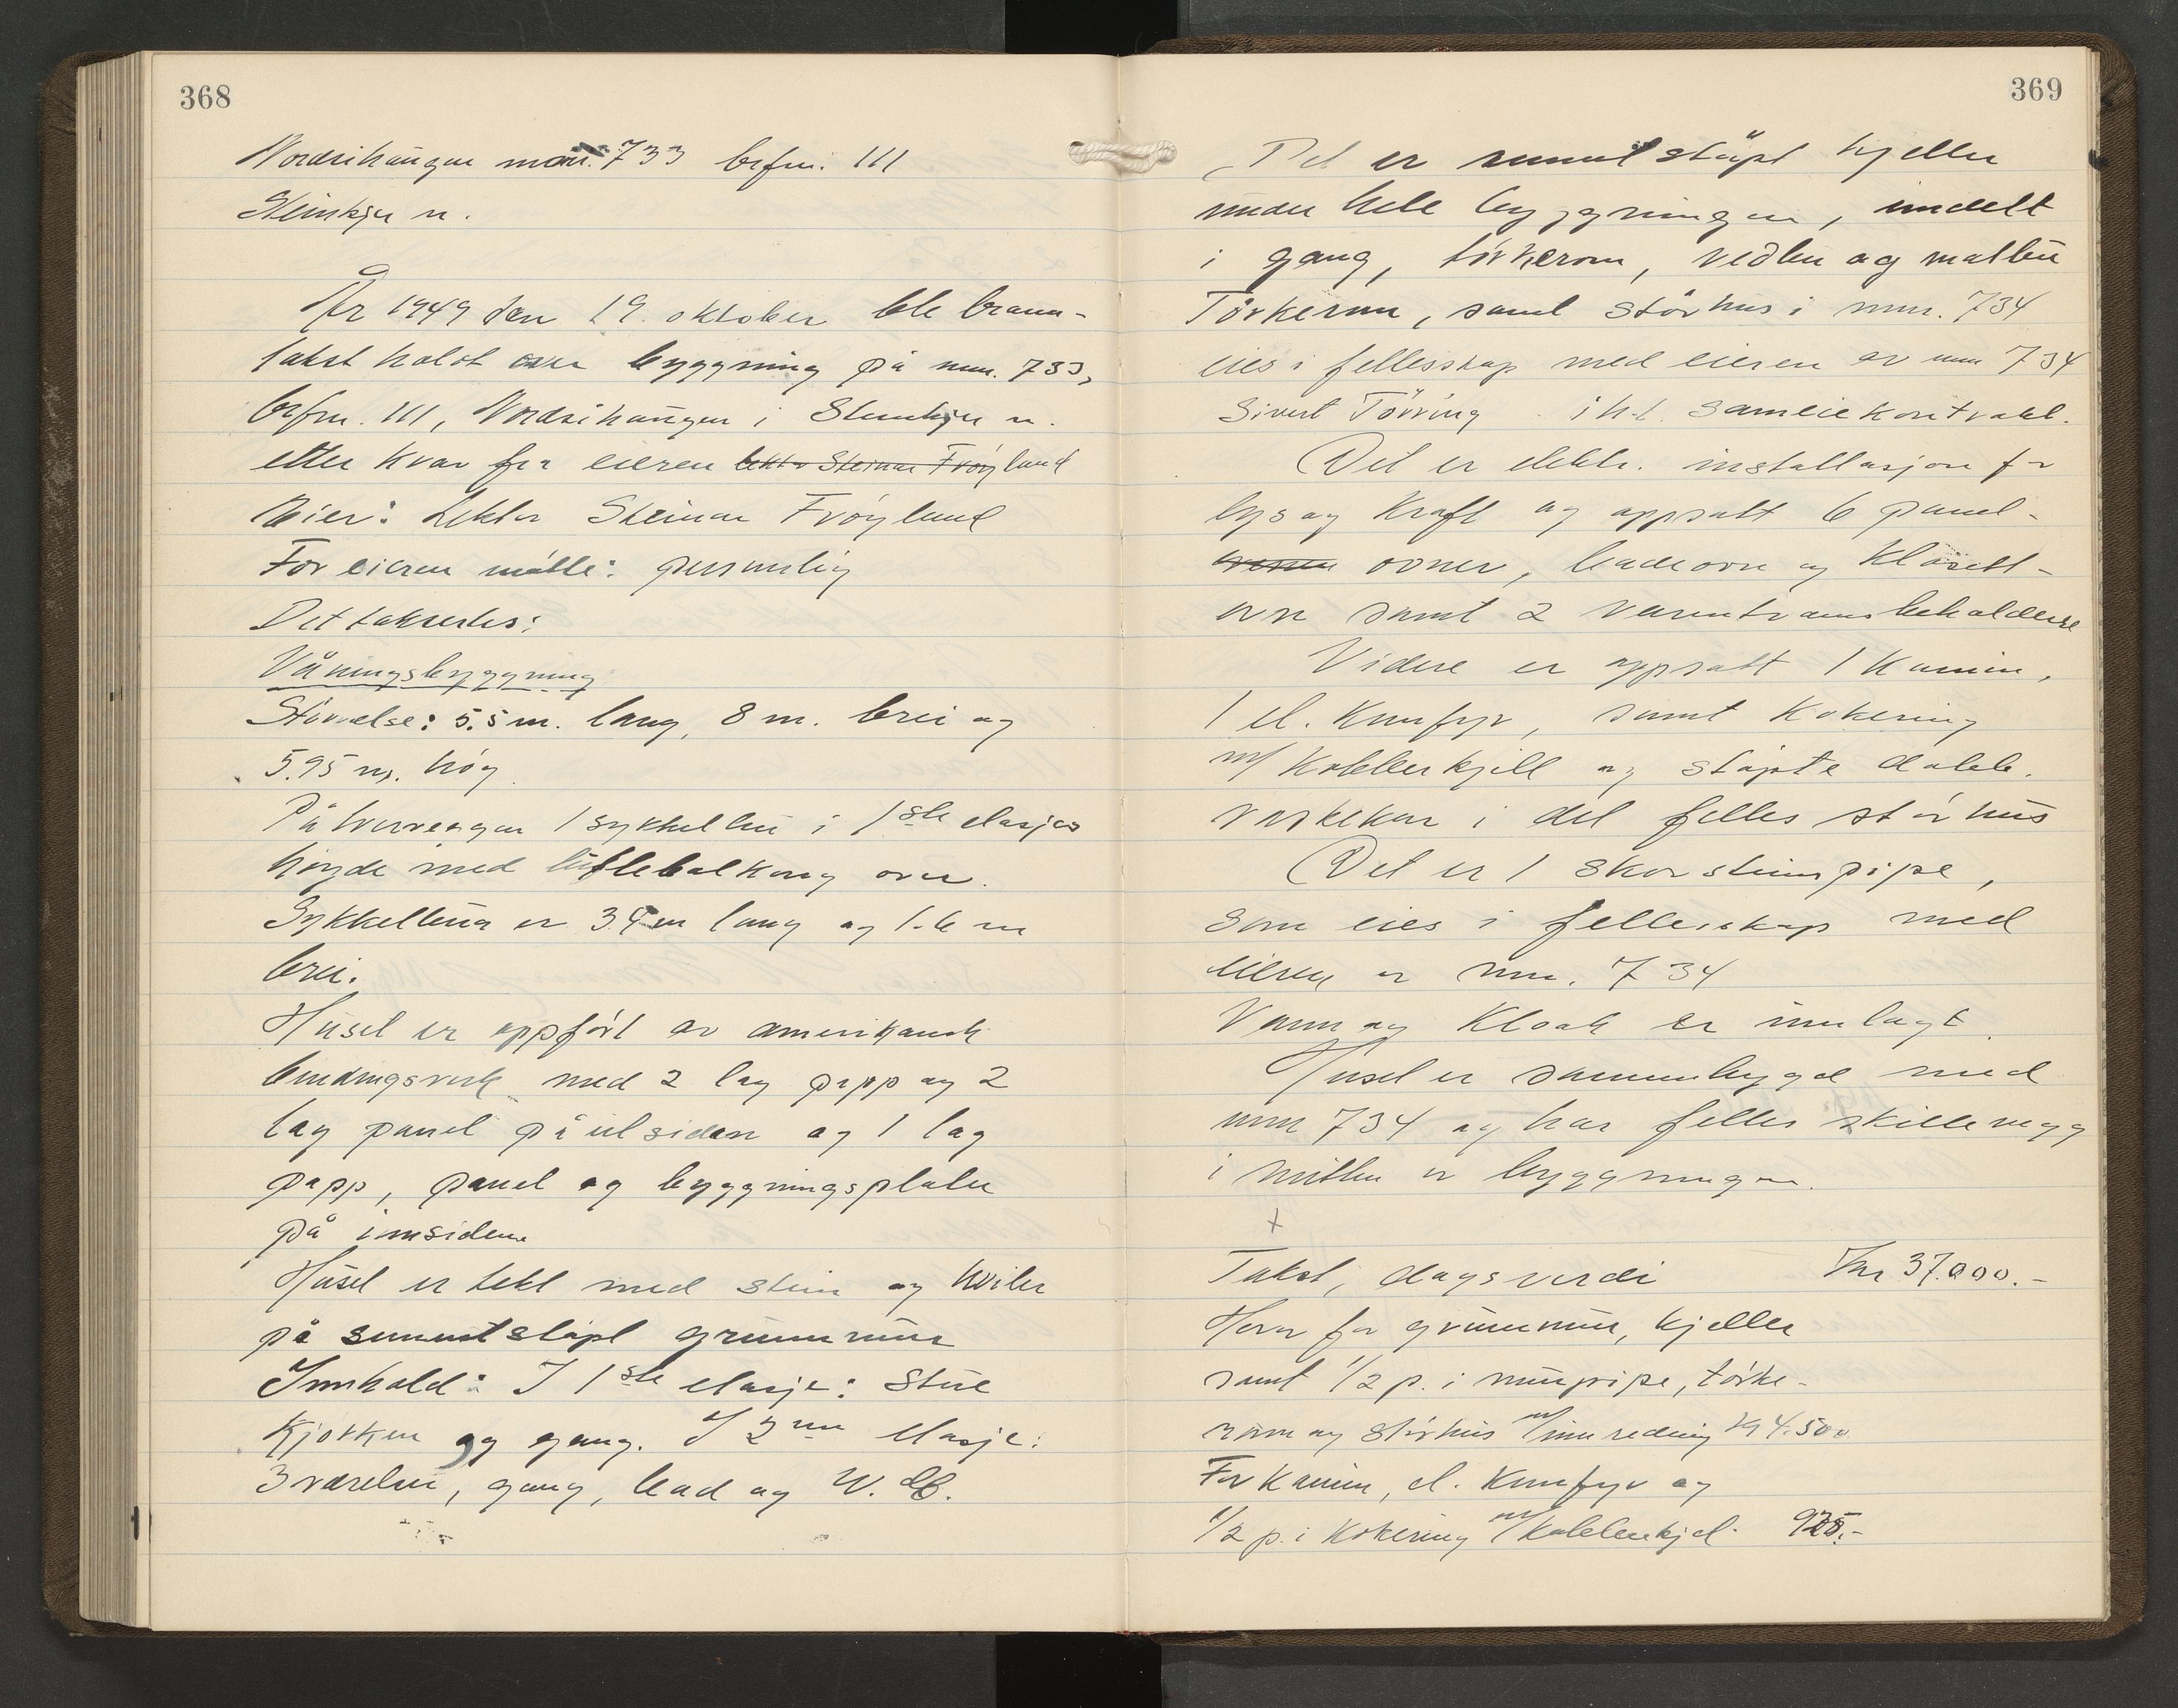 368
Nordsihaugen mnr. 733 brfnr. 111
Steinkjer n.
År 1949 den 19. oktober ble brann-
takst holdt over byggning på mnr. 733,
brfnr. 111, Nordsihaugen i Steinkjer n.
etter krav fra eieren lektor Steinar Fröyland
Eier: Lektor Steinar Fröyland
For eieren mötte: personlig
Det takseres:
Våningsbyggning
Störrelse: 5.5 m. lang, 8 m. brei og
5.95 m. hög
På tverveggen 1 sykkelbu i 1ste etasjes
högde med luftebalkong over.
Sykkelbua er 3.4 m lang og 1.6 m
brei.
Huset er oppfört av amerikansk
bindingsverk med 2 lag papp og 2
lag panel på utsiden og 1 lag
papp, panel og byggningsplater
på innsiden
Huset er tekt med stein og kviler
på sementstöpt grunnmur
Innhold: I 1ste etasje: Stue
kjökken og gang. I 2nn etasje:
3 værelser, gang, bad og W.C.
369
Det er sementstöpt kjeller
under hele byggningen, inndelt
i gang, törkerom, vedbu og matbu
Törkerom, samt störhus i mnr. 734
eies i fellesskap med eieren av mnr 734
Sivert Törring iht. sameiekontrakt.
Det er elektr. installasjon for
lys og kraft og oppsatt 6 panel-
ovner, badeovn og klosett-
ovn samt 2 varmtvannsbeholdere
Videre er oppsatt 1 kamin,
1 el. komfyr, samt kokering
m/ kobberkjell og stöpte dobb.
vaskekar i det felles störhus
Det er 1 skorsteinspipe,
som eies i fellesskap med
eieren av mnr. 734
Vann og kloak er innlagt.
Huset er sammenbygd med
mnr 734 og har felles skillevegg
i midten av byggningen.
+
Takst, dagsverdi Kr 37.000.-
Herav for grunnmur, kjeller
samt 1/2 p. i murpipe, törke-
rom og störhus m/innredning kr 4.500
For kamin, el. komfyr og
1/2 p. i kokering m/kobberkjel. 925.-